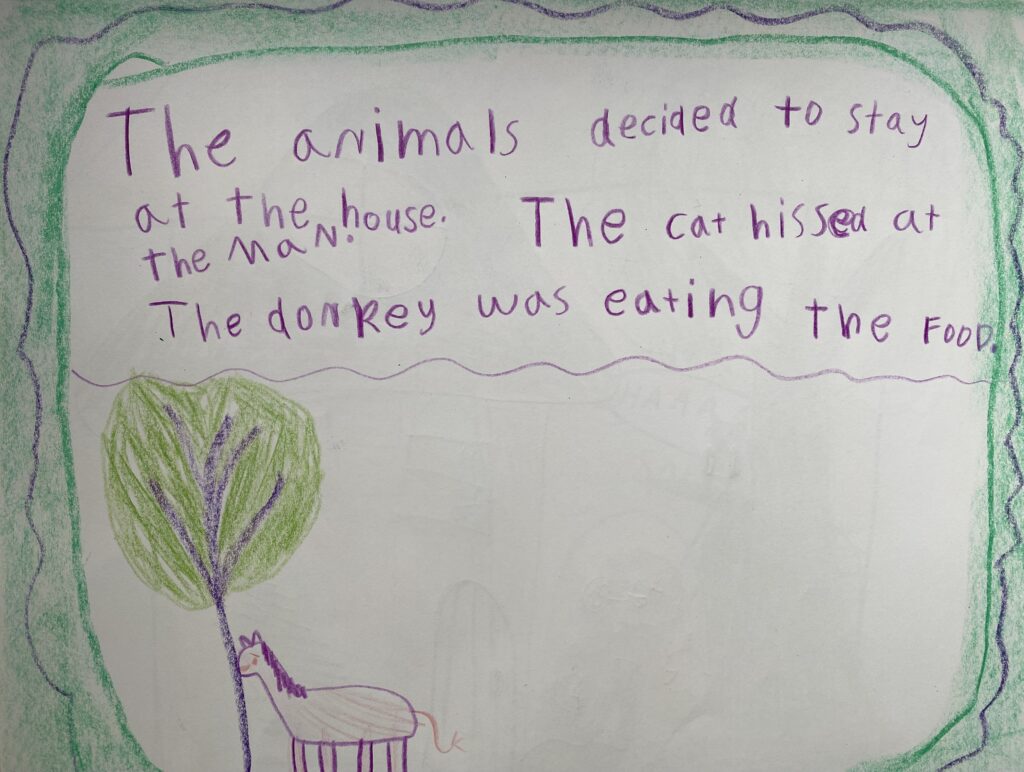 The animals decided to stay
at the house. The cat hissed at
the MaN.
The donkey was eating the FOOD.